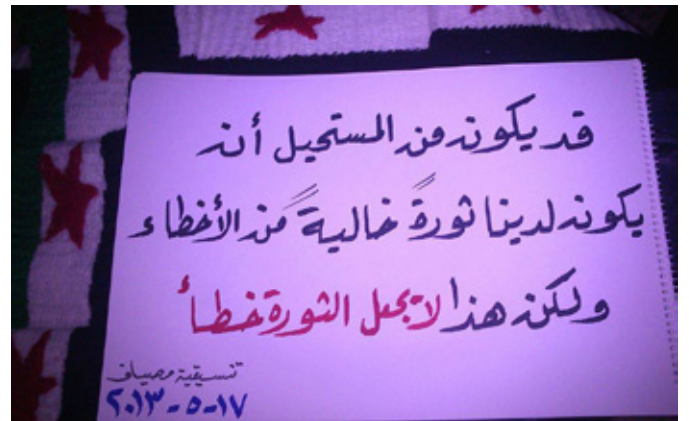 قد يكون من المستحيل أن
يكون لدينا ثورةً خاليةً من الأخطاء
ولكن هذا لا يجعل الثورة خطأ
تنسيقية مصياف
١٧-٥-٢٠١٣